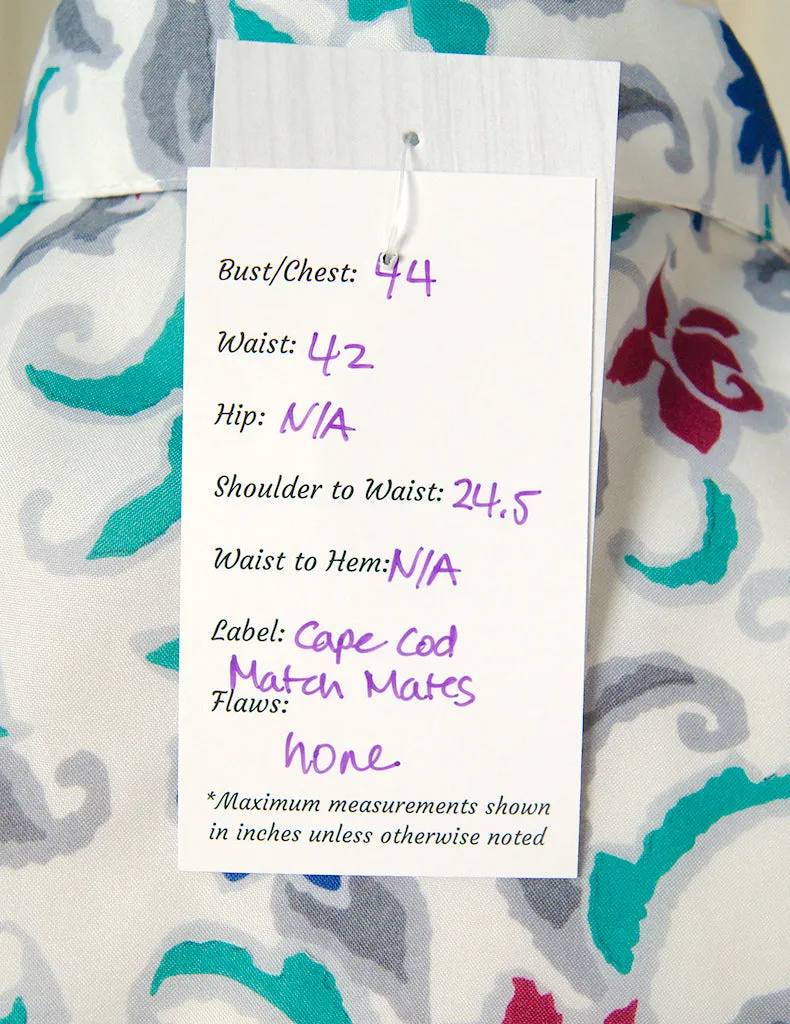 Bust/Chest: 44
Waist: 42
Hip: N/A
Shoulder to Waist: 24.5
Waist to Hem: N/A
Label: Cape Cod
Match Mates
Flaws:
none
*Maximum measurements shown
in inches unless otherwise noted